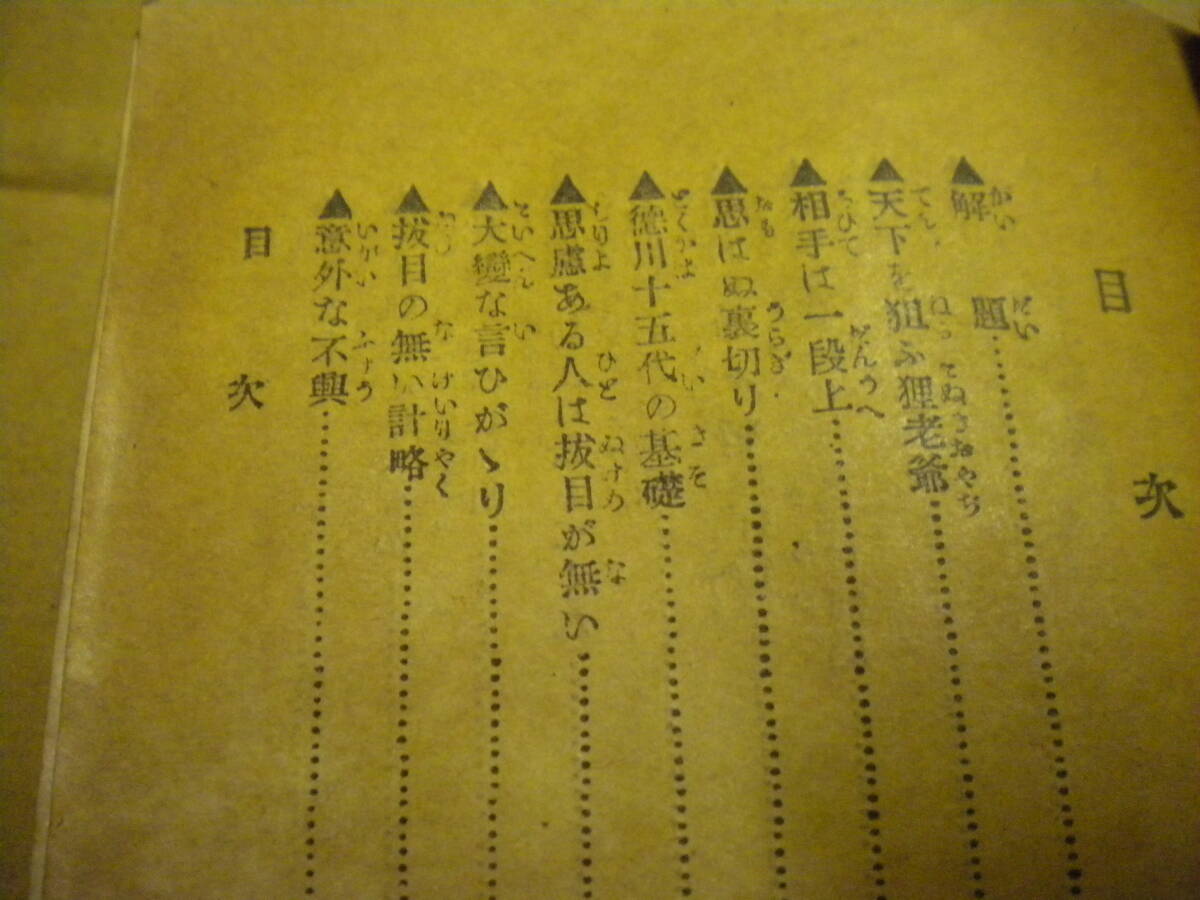 目次
▲解題
▲天下を狙ふ狸老爺
▲相手は一段上
▲思はぬ裏切り
▲徳川十五代の基礎
▲思慮ある人は拔目が無い
▲大變な言ひがゝり
▲拔目の無い計略
▲意外な不興
目次